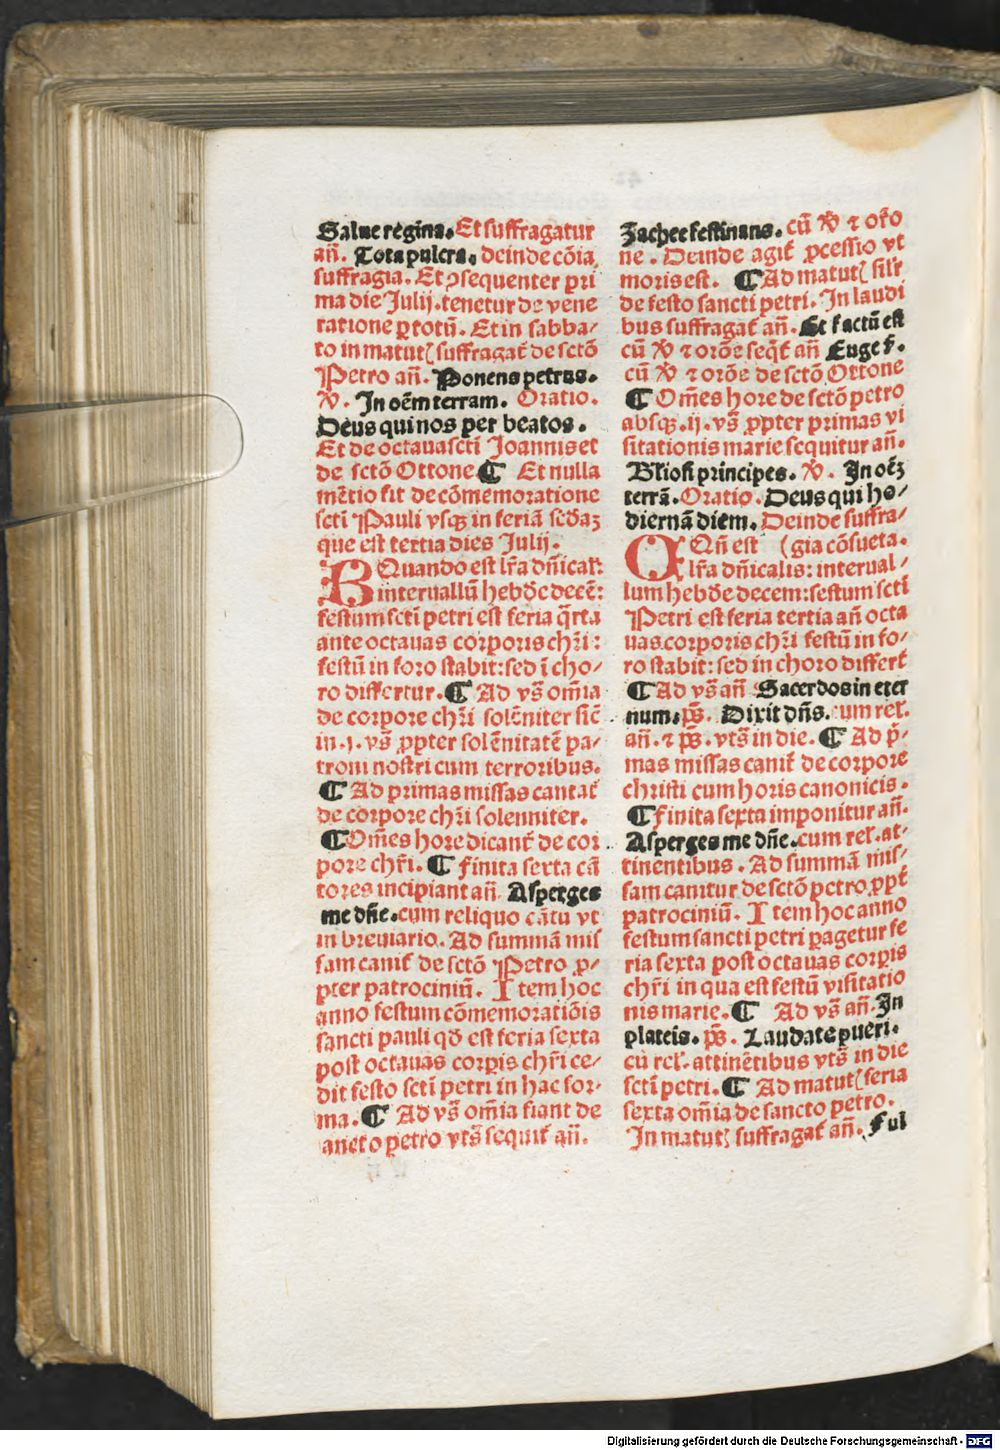 Salue regina. Et suffragatur
añ. Tota pulcra. deinde cõia
suffragia. Et ꝯsequenter pri
ma die Julij. tenetur de vene
ratione ꝑ totũ. Et in sabba⸗
to in matutꝭ suffragat̃ de sctõ
Petro añ. Ponens petrus.
℣. In oẽm terram. Oratio.
Deus qui nos per beatos.
Et de octaua sctĩ Joannis et
de sctõ Ottone ¶ Et nulla
mẽtio fit de cõmemoratione
sctĩ Pauli vsqꝫ in feriã scðaꝫ
que est tertia dies Julij.
B Quando est lr̃a dñicał:
interuallũ hebðe decẽ:
festum sctĩ petri est feria q̃rta
ante octauas corporis chr̃i:
festũ in foro stabit: sed ĩ cho⸗
ro differtur. ¶ Ad vs̃ om̃ia
de corpore chr̃i solẽniter sic̃
in .j. vs̃ ꝓpter solẽnitatẽ pa⸗
troni nostri cum terroribus.
¶ Ad primas missas cantat̃
de corpore chr̃i solenniter.
¶ Om̃es hore dicant̃ de cor
pore chr̃i. ¶ finita sexta cã
tores incipiant añ Asperges
me dñe. cum reliquo cãtu vt
in breuiario. Ad summã mis
sam canit̃ de sctõ Petro ꝓ⸗
pter patrociniũ. Item hoc
anno festum cõmemoratiõis
sancti pauli qð est feria sexta
post octauas corꝑis chr̃i ce⸗
dit festo sctĩ petri in hac for⸗
ma. ¶ Ad vs̃ om̃ia fiant de
ancto petro vts̃ sequit̃ añ.
Zachee festinans. cũ ℣ ⁊ orõ
ne. Deinde agit̃ ꝓcessio vt
moris est. ¶ Ad matutꝭ silr̃
de festo sancti petri. In laudi
bus suffragat̃ añ. Et factũ est
cũ ℣ ⁊ orõe seq̃t̃ añ Euge s̃.
cũ ℣ ⁊ orõe de sctõ Ottone
¶ Om̃es hore de sctõ petro
absqꝫ .ij. vs̃ ꝓpter primas vi
sitationis marie sequitur añ.
Gl̃iosi principes. ℣. In oẽꝫ
terrã. Oratio. Deus qui ho⸗
diernã diem. Deinde suffra⸗
C Qñ est (gia cõsueta.
lr̃a dñicalis: interual⸗
lum hebðe decem: festum sctĩ
Petri est feria tertia añ octa
uas corporis chr̃i festũ in fo⸗
ro stabit: sed in choro differt̃
¶ Ad vs̃ añ Sacerdos in eter
num. p̃s. Dixit dñs. cum rel̃.
añ. ⁊ p̃s. vts̃ in die. ¶ Ad p̃⸗
mas missas canit̃ de corpore
christi cum horis canonicis.
¶ finita sexta imponitur añ.
Asperges me dñe. cum rel̃. at⸗
tinentibus. Ad summã mis⸗
sam canitur de sctõ petro ꝓpt̃
patrociniũ. Item hoc anno
festum sancti petri ꝑagetur fe
ria sexta post octauas corꝑis
chr̃i in qua est festũ visitatio
nis marie. ¶ Ad vs̃ añ. In
plateis. p̃s. Laudate pueri.
cũ rel̃. attinẽtibus vts̃ in die
sctĩ petri. ¶ Ad matutꝭ feria
sexta om̃ia de sancto petro.
In matutꝭ suffragat̃ añ. Ful
Digitalisierung gefördert durch die Deutsche Forschungsgemeinschaft - DFG